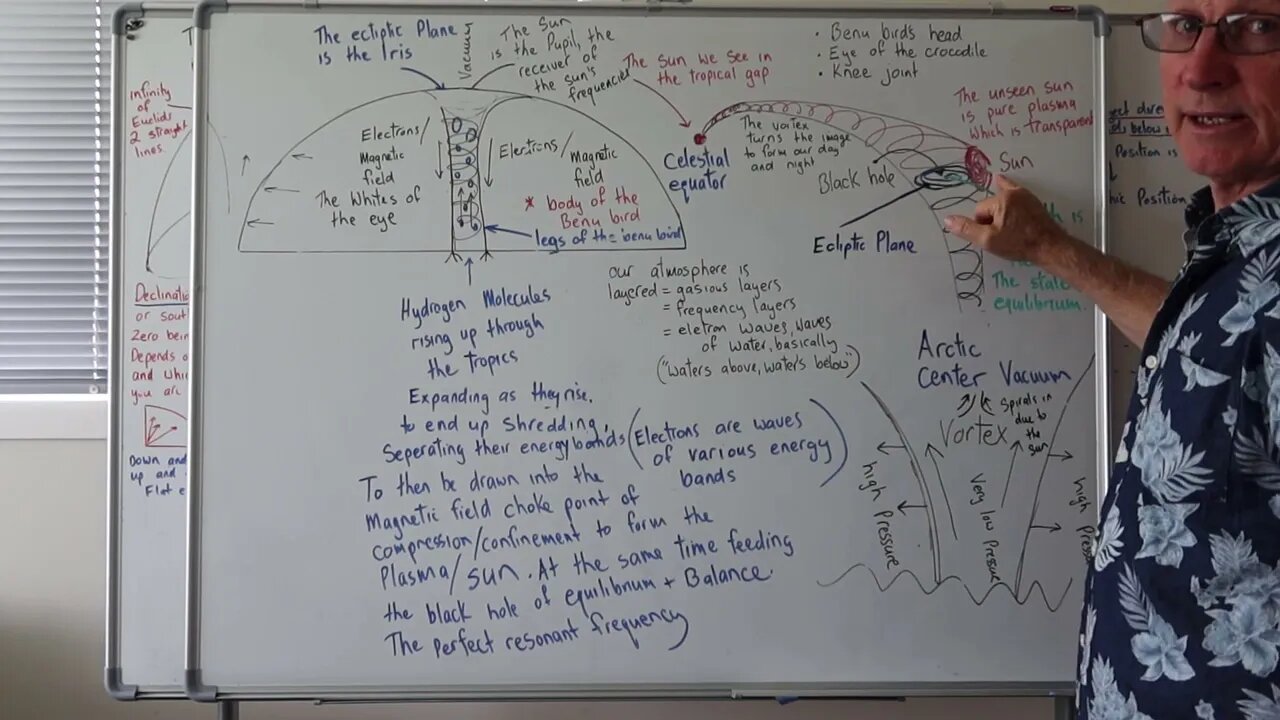 The ecliptic Plane
is the Iris
Vacuum
The Sun
is the Pupil, the
receiver of
the sun's
frequencies
The sun we see in
the tropical gap
• Benu bird's head
• Eye of the crocodile
• Knee joint
The unseen sun
is pure plasma
which is transparent
infinity
of
Euclids
2 straight
lines.
Electrons/
Magnetic
field
The Whites of
the eye
Electrons/
Magnetic
field
* body of the
Benu bird
legs of the benu bird
Celestial
equator
The vortex
turns the image
to form our day
and night
Black hole
Sun
Ecliptic Plane
The state
equilibrium.
Position is
Position
Hydrogen Molecules
rising up through
the tropics
Expanding as they rise,
to end up shredding,
Seperating their energy bonds
(Electrons are waves
of various energy
bands)
To then be drawn into the
Magnetic field choke point of
compression/confinement to form the
Plasma/sun. At the same time feeding
the black hole of equilibrium + Balance.
The perfect resonant frequency
our atmosphere is
layered = gasious layers
= frequency layers
= eletron waves, waves
of water, basically
("Waters above, waters below")
Arctic
Center Vacuum
Vortex
Spirals in
due to
the
sun
high Pressure
Very low Pressure
high Press
Declinati
or sout
Zero bein
Depends o
and whic
you are
Down and
up and
Flat e